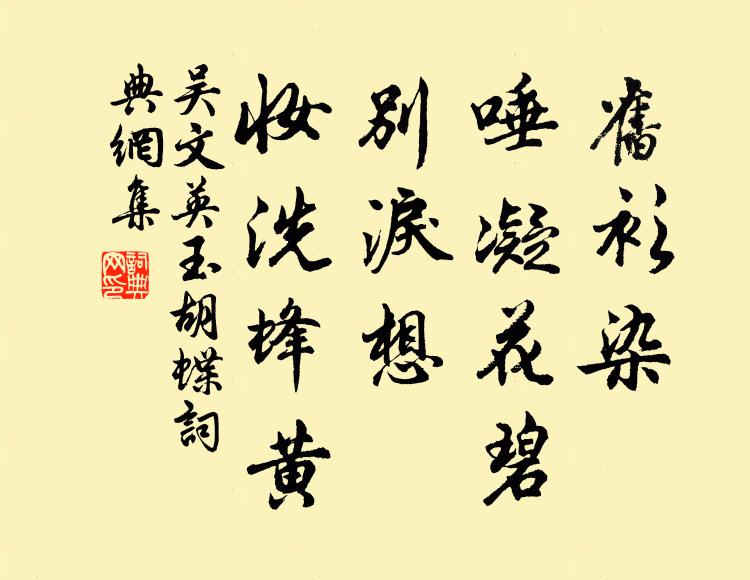 舊衫染
唾凝花碧
別淚想
妝洗蜂黃
吳文英玉胡蝶詞
典網集
詞典網印